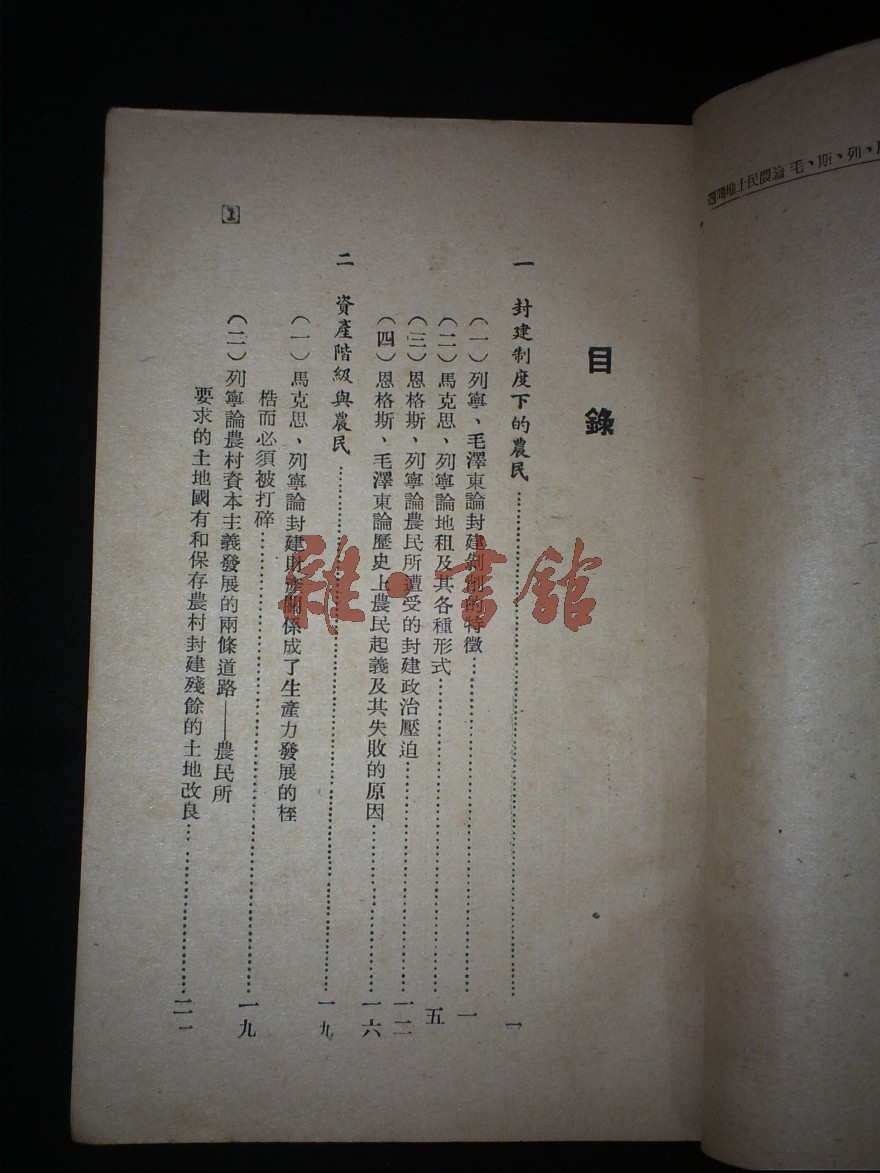 目錄
一 封建制度下的農民……………一
(一)列寧、毛澤東論封建剝削的特徵……………一
(二)馬克思、列寧論地租及其各種形式……………五
(三)恩格斯、列寧論農民所遭受的封建政治壓迫……………一二
(四)恩格斯、毛澤東論歷史上農民起義及其失敗的原因……………一六
二 資產階級與農民……………一九
(一)馬克思、列寧論封建財產關係成了生產力發展的桎
梏而必須被打碎……………一九
(二)列寧論農村資本主義發展的兩條道路——農民所
要求的土地國有和保存農村封建殘餘的土地改良……………二一
1
雜·書館
列、斯、毛論農民土地問題